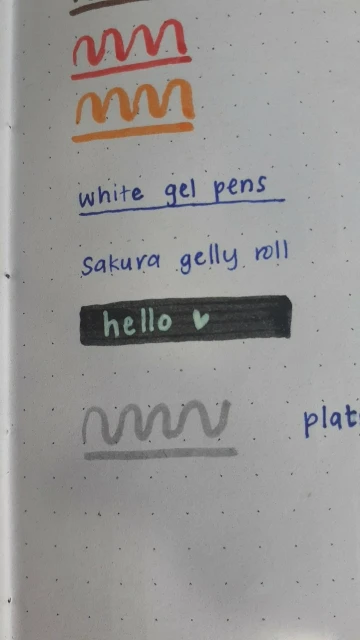 white gel pens
sakura gelly roll
hello ♥
plat